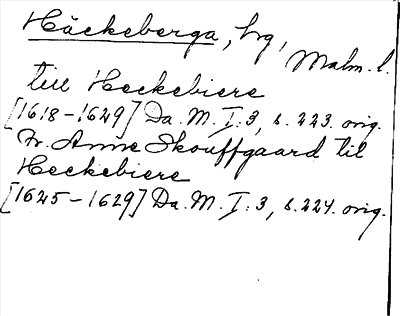 Häckeberga, hg, Malm. l.
till Heckebiere
[1618-1629] Da. M. I:3, s. 223. orig.
Fr. Anne Skouffgaard til
Heckebiere
[1625-1629] Da. M. I:3, s. 224. orig.